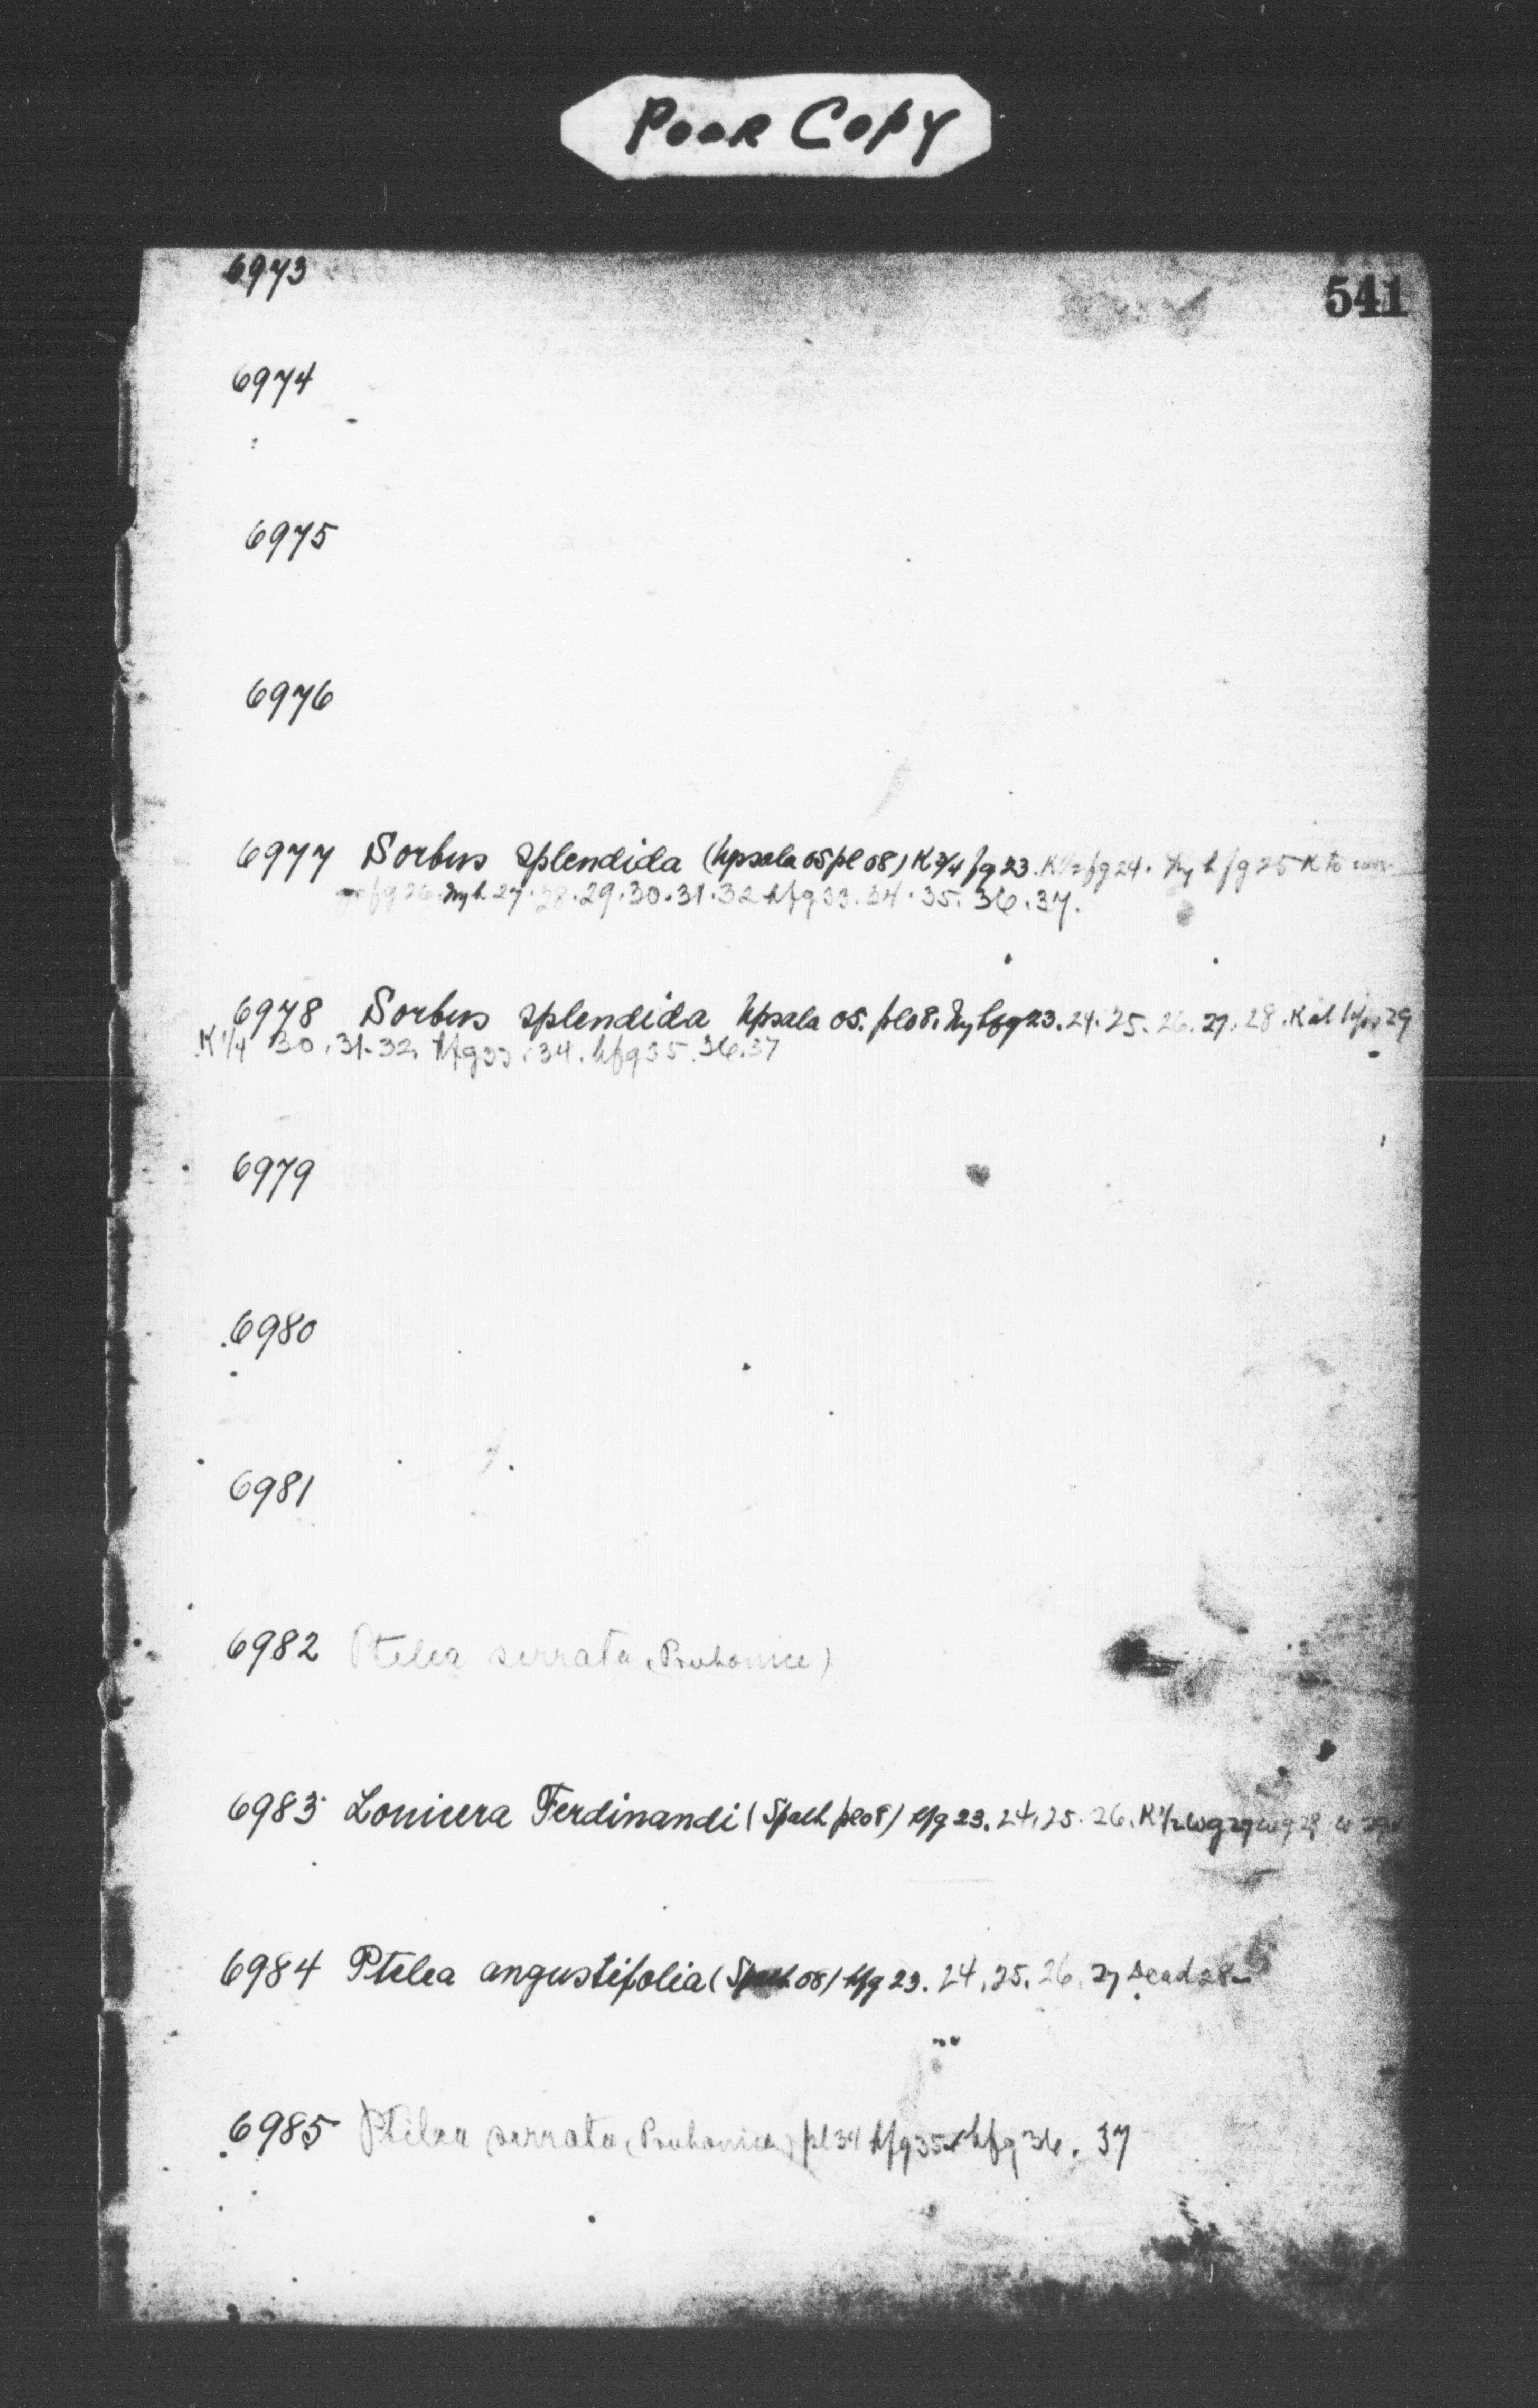 Poor Copy
541
6973
6974
6975
6976
6977 Sorbus splendida (Upsala 05 pl 08) K 3/4 fg 23. K 1/2 fg 24. h fg 25 K to
fg 26. 27. 28. 29. 30. 31. 32 hfg 33. 34. 35. 36. 37.
6978 Sorbus splendida Upsala 05. pl 08. hfg 23. 24. 25. 26. 27. 28. K 29
K 1/4 30. 31. 32. hfg 33. 34. hfg 35. 36. 37
6979
6980
6981
6982 Ptelea serrata (Pruhonice)
6983 Lonicera Ferdinandi (Spath pl 08) hfg 23. 24. 25. 26. K 1/2
6984 Ptelea angustifolia (Spath 08) hfg 23. 24. 25. 26. 27 Dead 28
6985 Ptelea serrata (Pruhonice) pl 34 hfg 35 hfg 36. 37